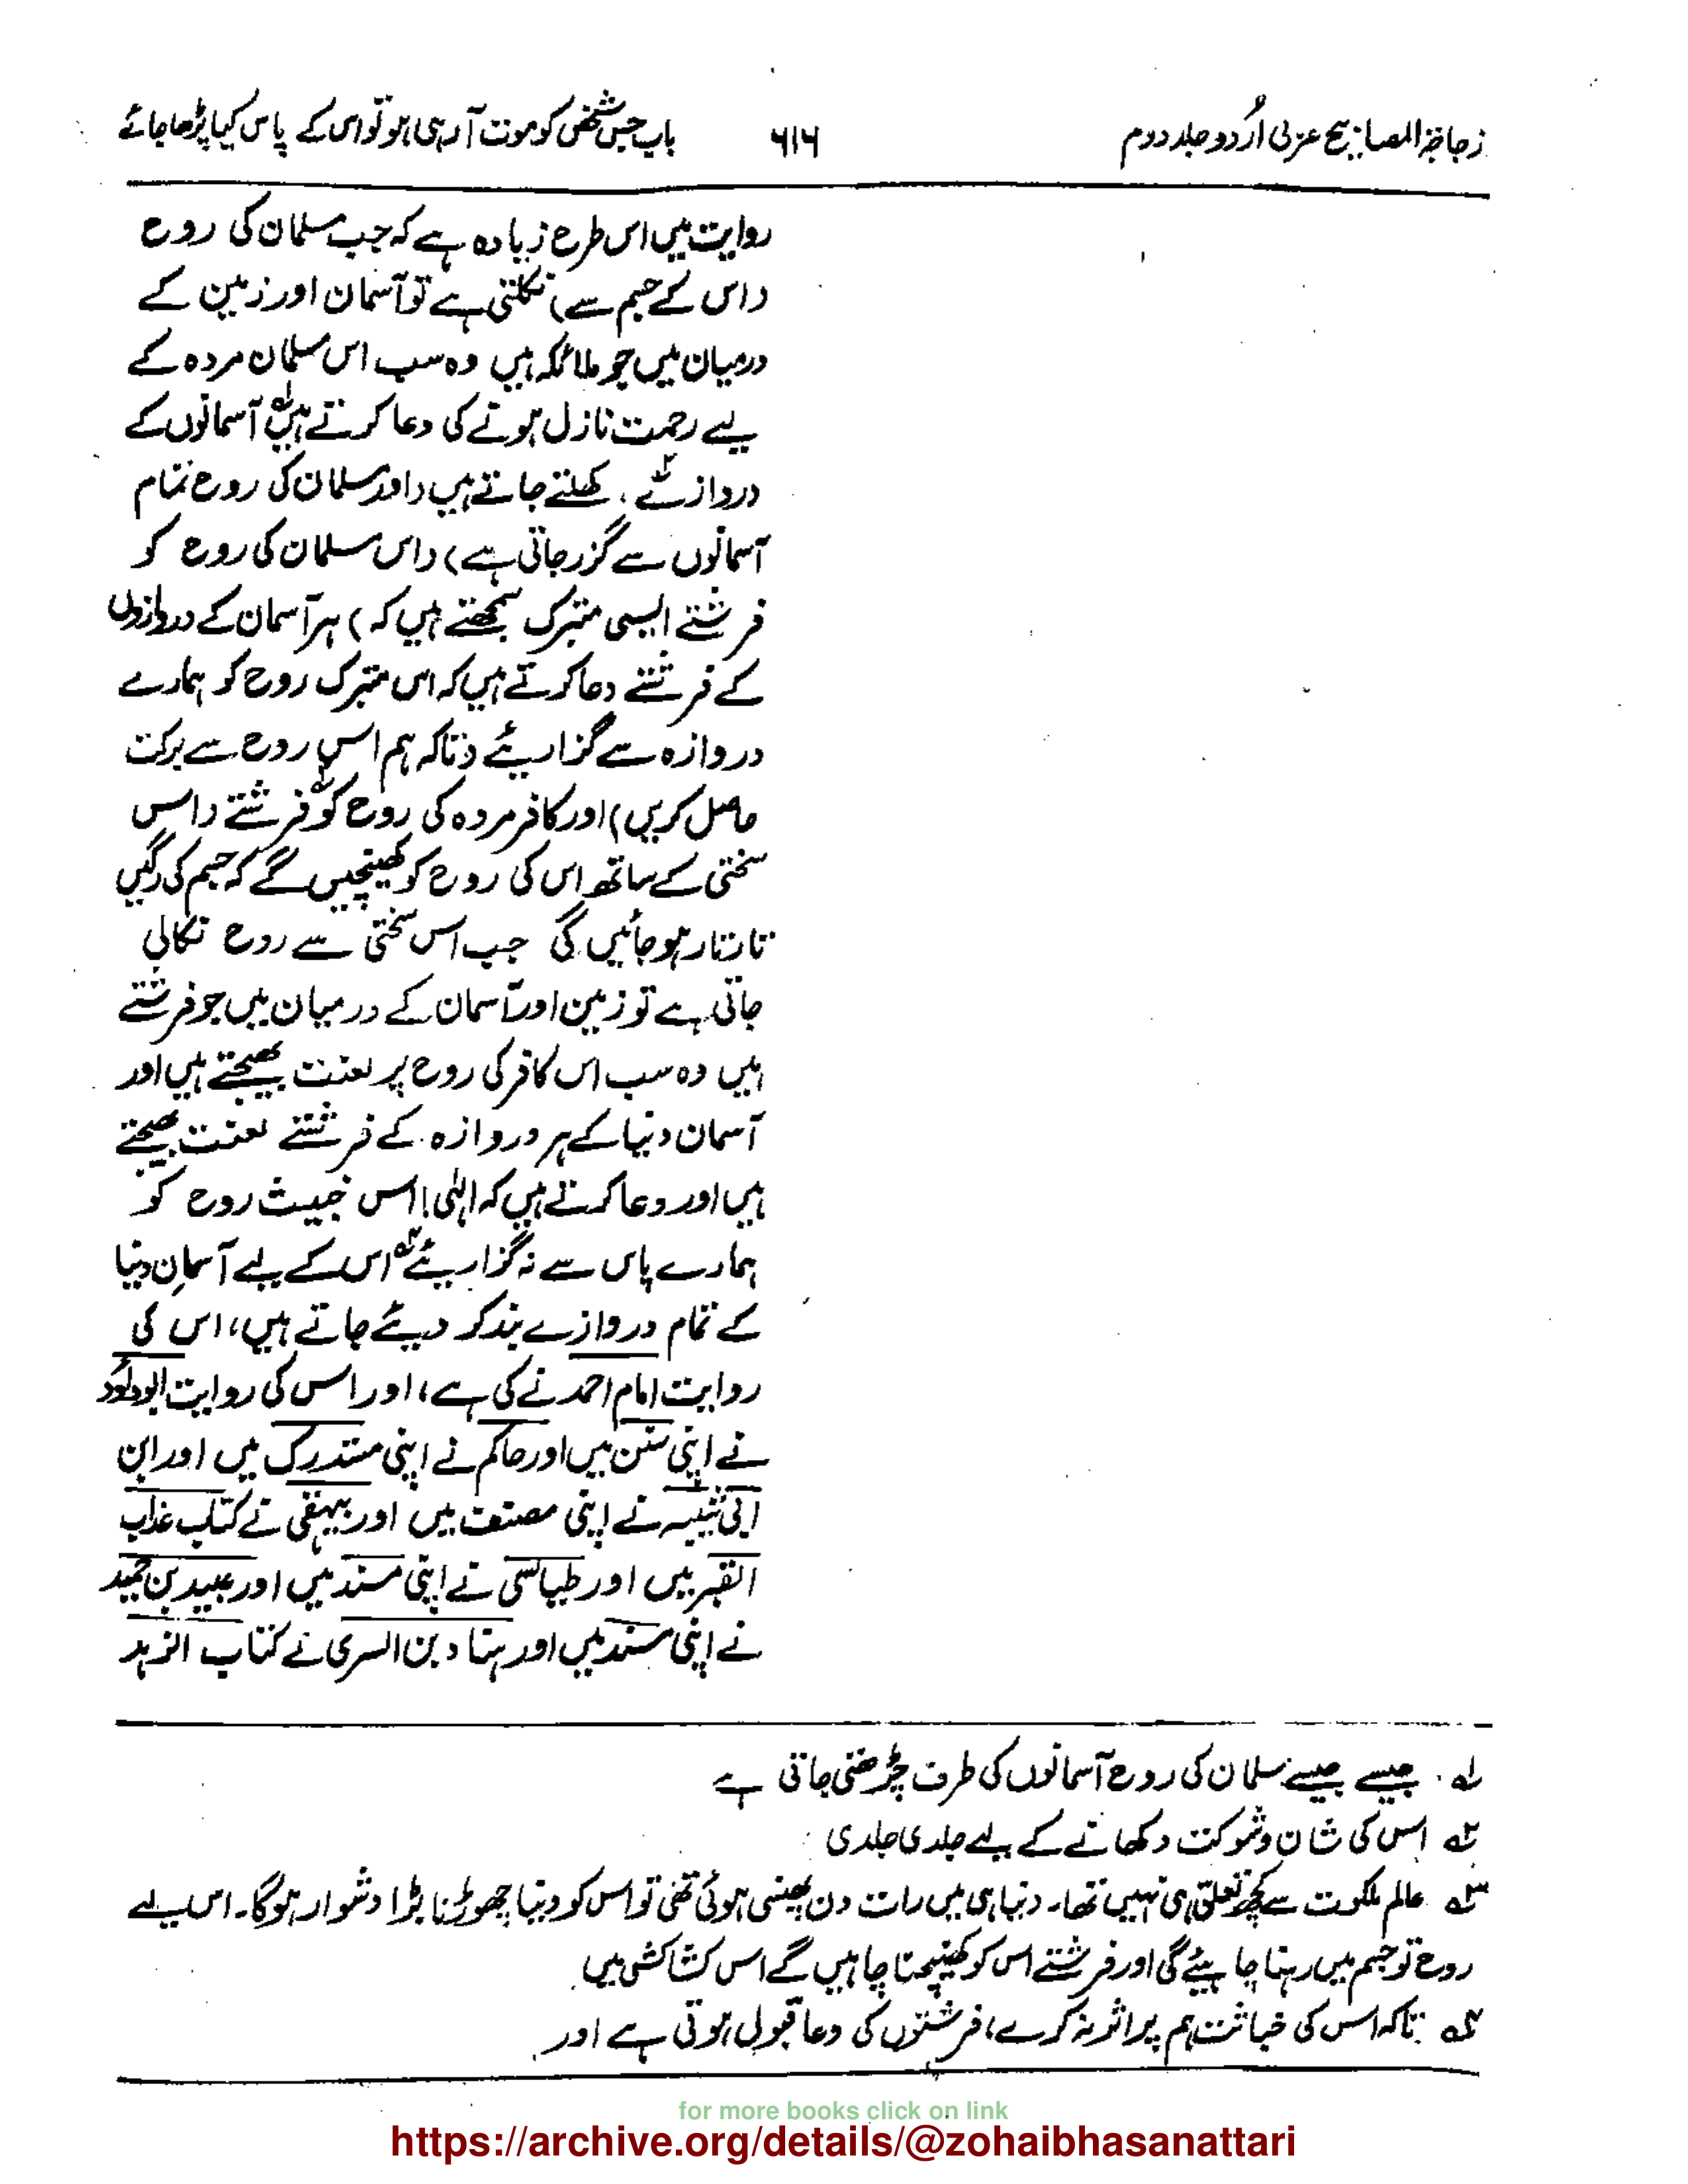 زجاجۃ المصابیح عربی اُردو جلد دوم ۶۱۶ باب جس شخص کو موت آ رہی ہو تو اس کے پاس کیا پڑھا جائے
روایت میں اس طرح زیادہ ہے کہ جب مسلمان کی روح
(اس کے جسم سے) نکلتی ہے تو آسمان اور زمین کے
درمیان میں جو ملائکہ ہیں وہ سب اس مسلمان مردہ کے
لیے رحمت نازل ہونے کی دعا کرتے ہیں لہ آسمانوں کے
دروازے ۲ کھلتے جاتے ہیں (اور مسلمان کی روح تمام
آسمانوں سے گزر جاتی ہے) (اس مسلمان کی روح کو
فرشتے ایسی متبرک سمجھتے ہیں کہ) ہر آسمان کے دروازوں
کے فرشتے دعا کرتے ہیں کہ اس متبرک روح کو ہمارے
دروازہ سے گزاریئے (تاکہ ہم اس روح سے برکت
حاصل کریں) اور کافر مردہ کی روح کو ۳ فرشتے (اس
سختی کے ساتھ اس کی روح کو کھینچیں گے کہ جسم کی رگیں
تار تار ہو جائیں گی جب اس سختی سے روح نکالی
جاتی ہے تو زمین اور آسمان کے درمیان میں جو فرشتے
ہیں وہ سب اس کافر کی روح پر لعنت بھیجتے ہیں اور
آسمان دنیا کے ہر دروازہ کے فرشتے لعنت بھیجتے
ہیں اور دعا کرتے ہیں کہ الٰہی! اس خبیث روح کو
ہمارے پاس سے نہ گزاریئے ۴ اس کے لیے آسمانِ دنیا
کے تمام دروازے بند کر دیئے جاتے ہیں، اس کی
روایت امام احمد نے کی ہے، اور اس کی روایت ابوداؤد
نے اپنی سنن میں اور حاکم نے اپنی مستدرک میں اور ابن
ابی شیبہ نے اپنی مصنف میں اور بیہقی نے کتاب عذاب
القبر میں اور طیالسی نے اپنی مسند میں اور عبید بن حمید
نے اپنی مسند میں اور ہناد بن السری نے کتاب الزہد
لہ جیسے جیسے مسلمان کی روح آسمانوں کی طرف چڑھتی جاتی ہے
۲ اس کی شان و شوکت دکھانے کے لیے جلدی جلدی
۳ عالم ملکوت سے کچھ تعلق ہی نہیں تھا۔ دنیا ہی میں رات دن پھنسی ہوئی تھی تو اس کو دنیا چھوڑنا بڑا دشوار ہوگا۔ اس لیے
روح تو جسم میں رہنا چاہیئے گی اور فرشتے اس کو کھینچنا چاہیں گے اس کشاکشی میں
۴ تاکہ اس کی خباثت ہم پر اثر نہ کرے، فرشتوں کی دعا قبول ہوتی ہے اور
for more books click on link
https://archive.org/details/@zohaibhasanattari